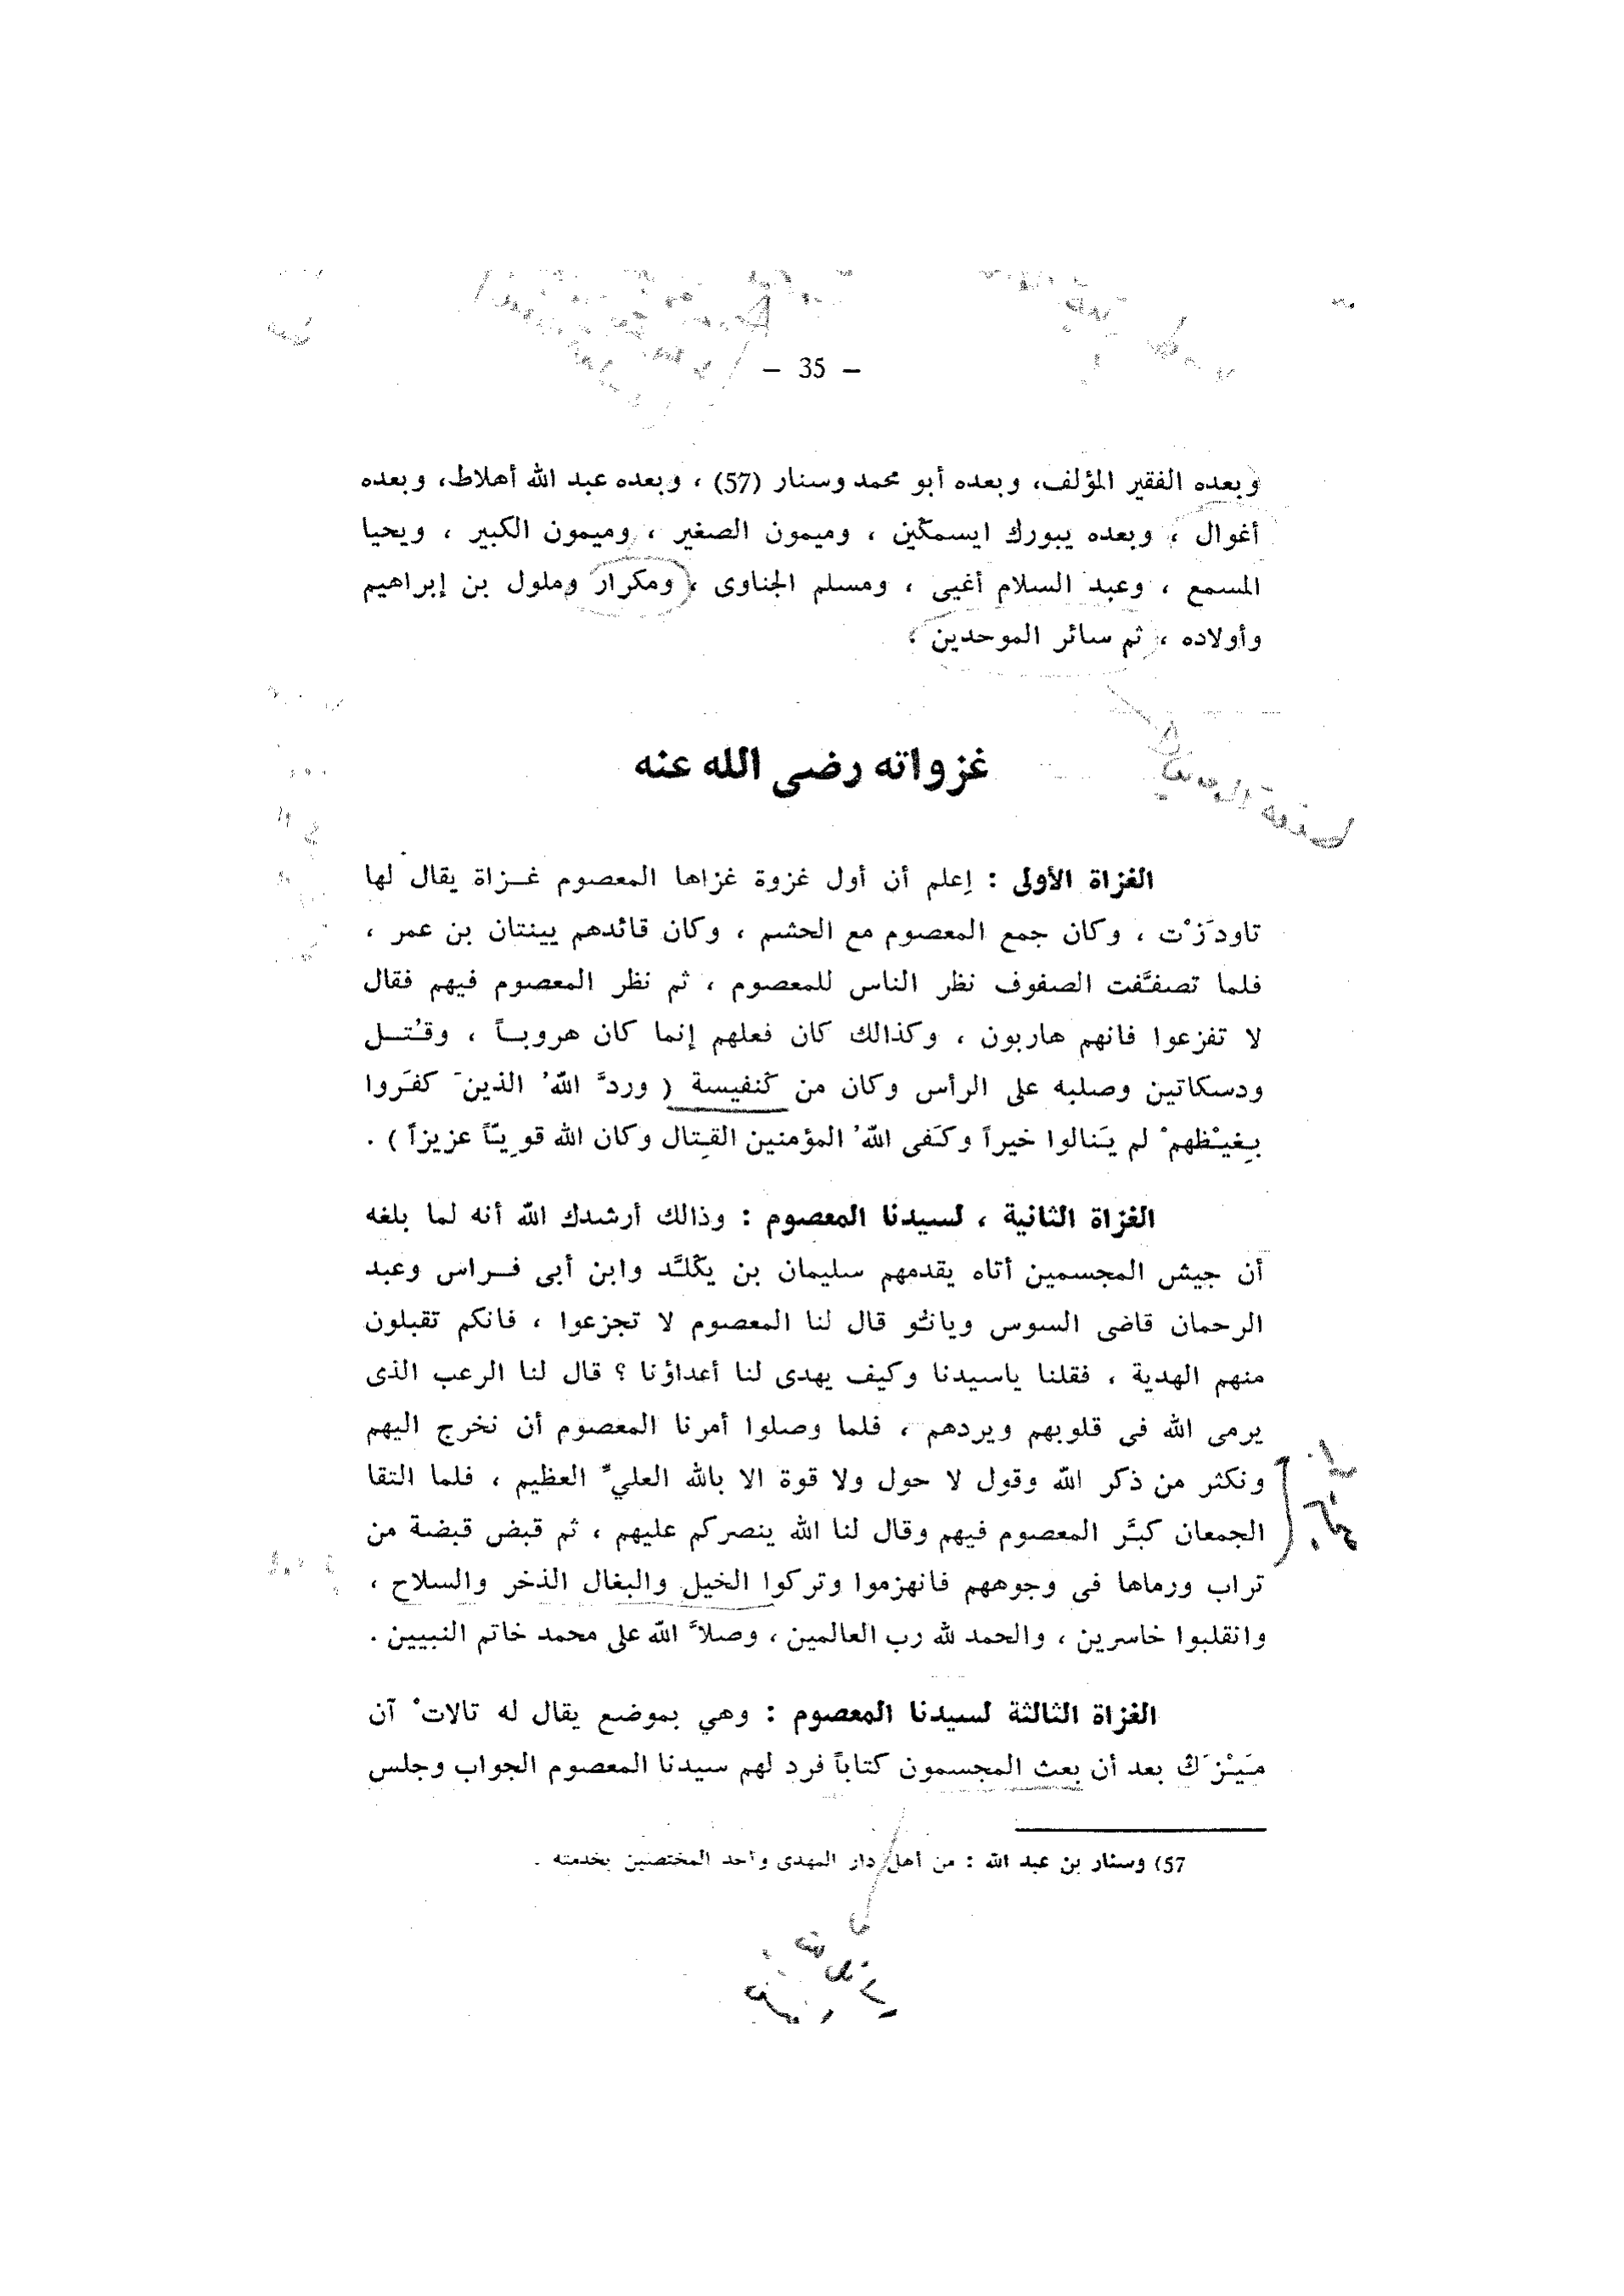 — 35 —
وبعده الفقير المؤلف، وبعده أبو محمد وسنار (57) ، وبعده عبد الله أهلاط، وبعده
أغوال ، وبعده يبورك ايسمكّين ، وميمون الصغير ، وميمون الكبير ، ويحيا
المسمع ، وعبد السلام أغيى ، ومسلم الجناوى ، ومكرار وملول بن إبراهيم
وأولاده ، ثم سائر الموحدين ،
غزواته رضى الله عنه
الغزاة الأولى : إعلم أن أول غزوة غزاها المعصوم غـزاة يقال لها
تاودَزْت ، وكان جمع المعصوم مع الحشم ، وكان قائدهم يينتان بن عمر ،
فلما تصفَّفت الصفوف نظر الناس للمعصوم ، ثم نظر المعصوم فيهم فقال
لا تفزعوا فانهم هاربون ، وكذالك كان فعلهم إنما كان هروبـاً ، وقُتـل
ودسكاتين وصلبه على الرأس وكان من گنفيسة ( وردَّ اللهُ الذينَ كفَروا
بِغيْظهمْ لم يَنالوا خيراً وكَفى اللهُ المؤمنين القِتال وكان الله قوِيّاً عزيزاً ) .
الغزاة الثانية ، لسيدنا المعصوم : وذالك أرشدك الله أنه لما بلغه
أن جيش المجسمين أتاه يقدمهم سليمان بن يگلَّد وابن أبى فـراس وعبد
الرحمان قاضى السوس ويانُّو قال لنا المعصوم لا تجزعوا ، فانكم تقبلون
منهم الهدية ، فقلنا ياسيدنا وكيف يهدى لنا أعداؤنا ؟ قال لنا الرعب الذى
يرمى الله فى قلوبهم ويردهم ، فلما وصلوا أمرنا المعصوم أن نخرج اليهم
ونكثر من ذكر الله وقول لا حول ولا قوة الا بالله العليِّ العظيم ، فلما التقا
الجمعان كبَّر المعصوم فيهم وقال لنا الله ينصركم عليهم ، ثم قبض قبضة من
تراب ورماها فى وجوههم فانهزموا وتركوا الخيل والبغال الذخر والسلاح ،
وانقلبوا خاسرين ، والحمد لله رب العالمين ، وصلاَّ الله على محمد خاتم النبيين .
الغزاة الثالثة لسيدنا المعصوم : وهي بموضع يقال له تالاتْ آن
مَيْزَگ بعد أن بعث المجسمون كتاباً فرد لهم سيدنا المعصوم الجواب وجلس
57) وسنار بن عبد الله : من أهل دار المهدى وأحد المختصين بخدمته .